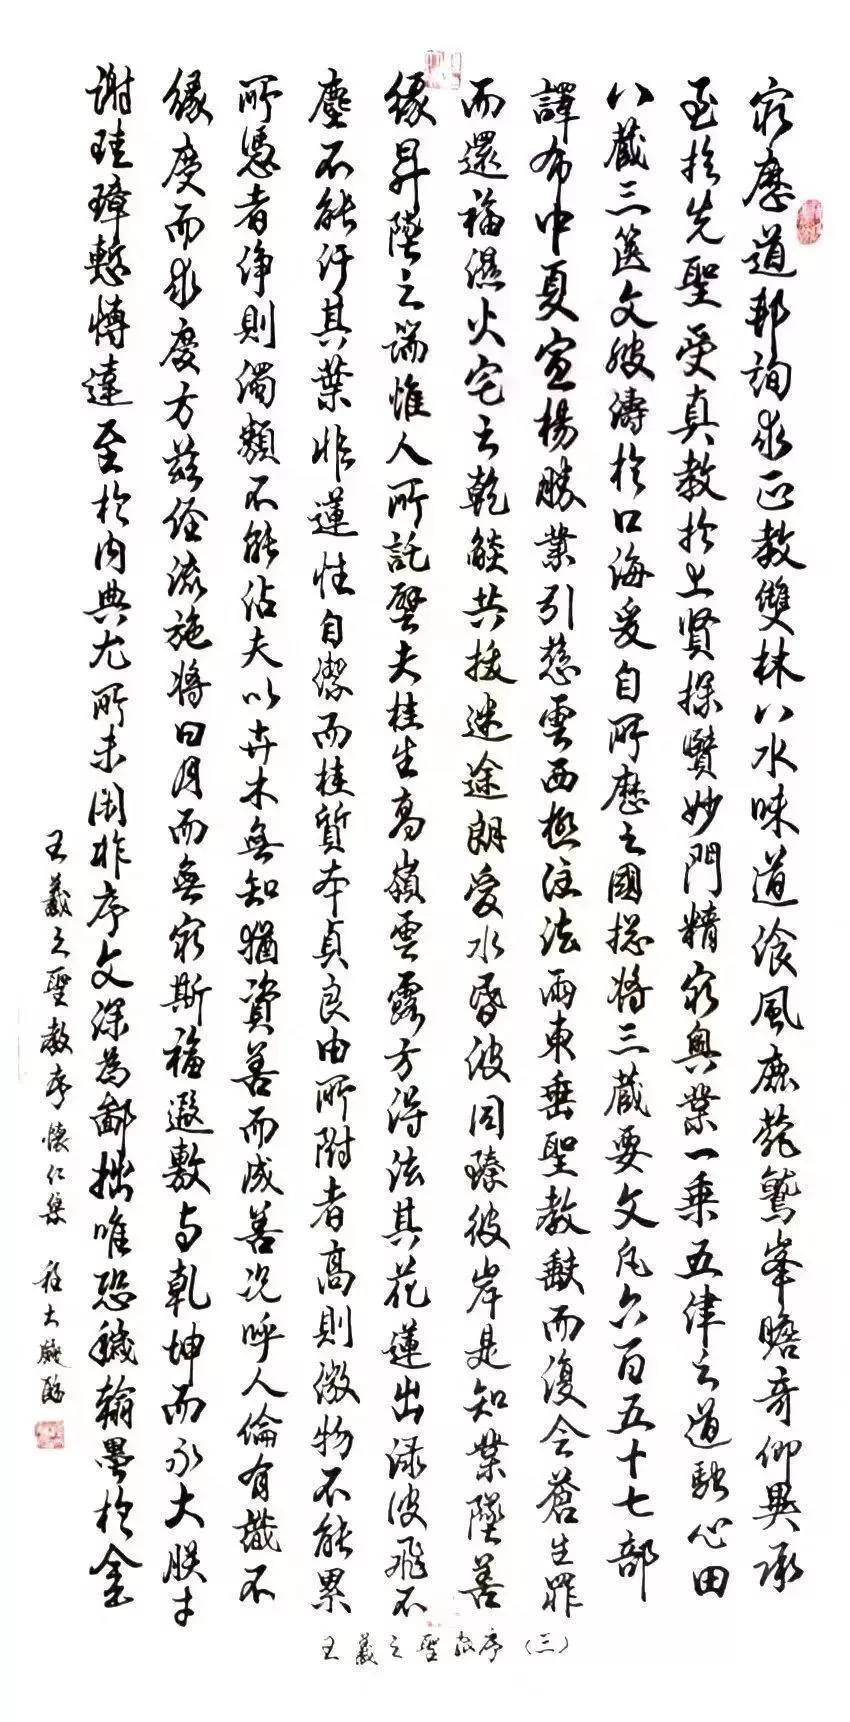 窮歷道邦詢求正教雙林八水味道飡風鹿菀鷲峯瞻奇仰異承
至於先聖受真教於上賢探賾妙門精窮奧業一乘五律之道馳心田
八藏三篋文波濤於口海爰自所歷之國揔將三藏要文凡六百五十七部
譯布中夏宣楊勝業引慈雲西極注法雨東垂聖教缺而復全蒼生罪
而還福濕火宅之乾焰共拔迷途朗愛水昏波同臻彼岸是知業墜善
緣昇墜之端惟人所託譬夫桂生高嶺雲露方得泫其花蓮出淥波飛不
塵不能汙其葉非蓮性自潔而桂質本貞良由所附者高則微物不能累
所憑者淨則濁類不能沾夫以卉木無知猶資善而成善況呼人倫有識不
緣慶而求慶方茲經流施將日月而無窮斯福遐敷与乾坤而永大朕才
謝珪璋慙博達至於內典尤所未閑昨序文深為鄙拙唯恐穢翰墨於金
王羲之聖教序懷仁集 程大
王羲之聖教序(三)